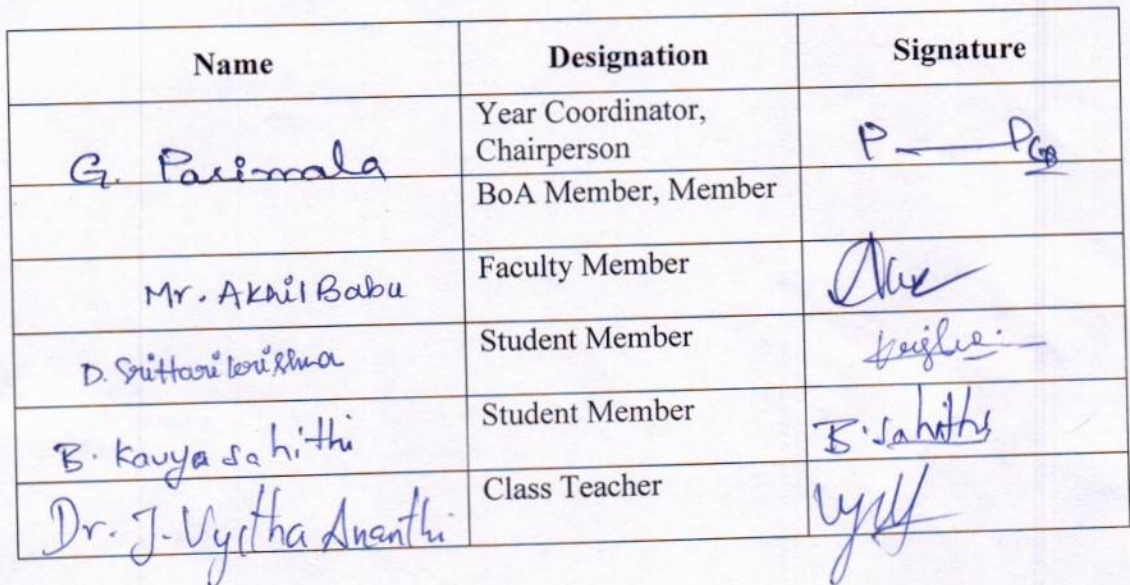 Name Designation Signature
Year Coordinator,
G. Parimala Chairperson
BoA Member, Member
Mr. Akhil Babu Faculty Member
D. SriHarikrishna Student Member
B. Kavya Sahithi Student Member B. Sahithi
Dr. J. Vyjtha Ananthi Class Teacher